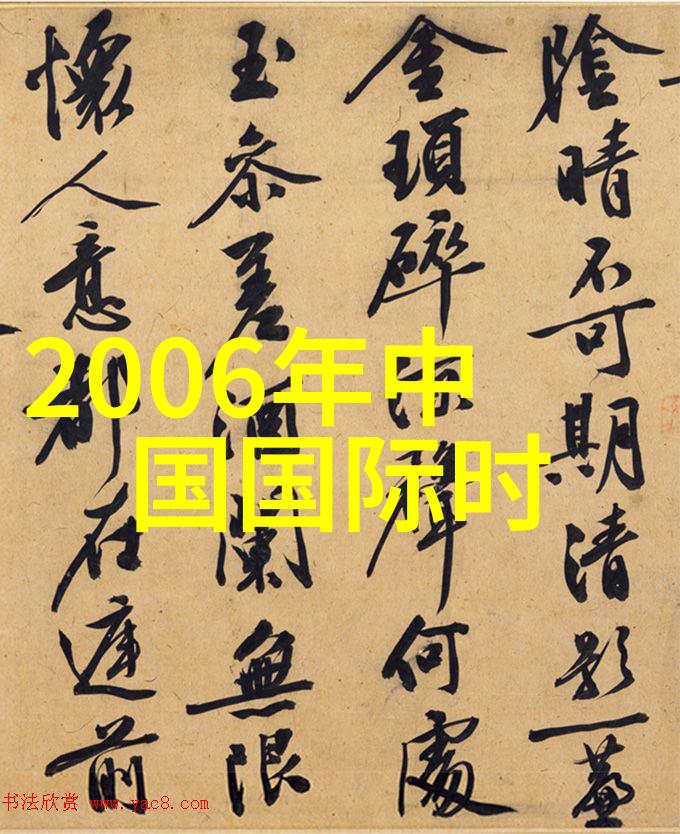 陰晴不可期清影一簾
金瑣碎涼聲何處
玉参差酒闌無限
懷人意都在庭前
2006年中
国国际时
书法欣赏 www.yac8.com